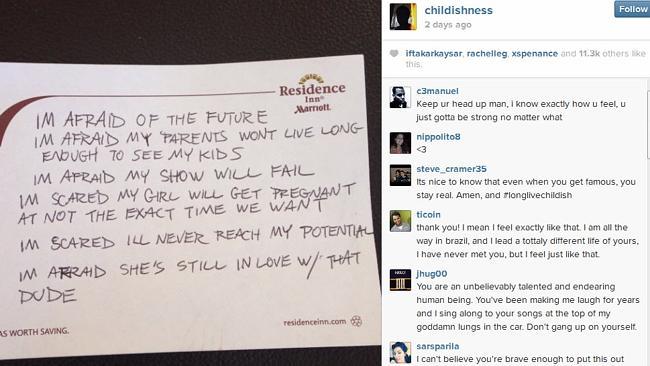 Residence
Inn®
Marriott.
IM AFRAID OF THE FUTURE
IM AFRAID MY PARENTS WONT LIVE LONG
ENOUGH TO SEE MY KIDS
IM AFRAID MY SHOW WILL FAIL
IM SCARED MY GIRL WILL GET PREGNANT
AT NOT THE EXACT TIME WE WANT
IM SCARED ILL NEVER REACH MY POTENTIAL
IM AFRAID SHE'S STILL IN LOVE W/ THAT
DUDE
AS WORTH SAVING.
residenceinn.com
childishness
2 days ago
Follow
iftakarkaysar, rachelleg, xspenance and 11.3k others like
this.
c3manuel
Keep ur head up man, i know exactly how u feel, u
just gotta be strong no matter what
nippolito8
<3
steve_cramer35
Its nice to know that even when you get famous, you
stay real. Amen, and #longlivechildish
ticoin
thank you! I mean I feel exactly like that. I am all the
way in brazil, and I lead a tottaly different life of yours,
I have never met you, but I feel just like that.
jhug00
You are an unbelievably talented and endearing
human being. You've been making me laugh for years
and I sing along to your songs at the top of my
goddamn lungs in the car. Don't gang up on yourself.
sarsparila
I can't believe you're brave enough to put this out